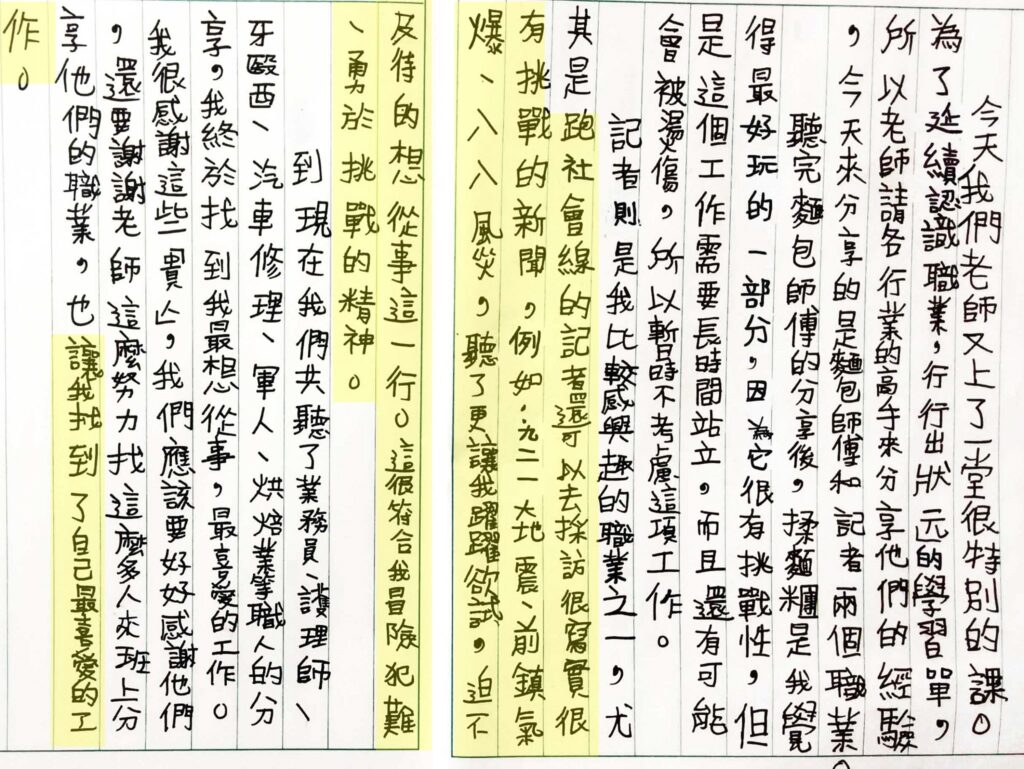 今天我們老師又上了一堂很特別的課。
為了延續認識職業，行行出狀元的學習單，
所以老師請各行業的高手來分享他們的經驗
，今天來分享的是麵包師傅和記者兩個職業
聽完麵包師傅的分享後，揉麵糰是我覺
得最好玩的一部分，因為它很有挑戰性，但
是這個工作需要長時間站立，而且還有可能
會被燙傷，所以暫時不考慮這項工作。
記者則是我比較感興趣的職業之一，尤
其是跑社會線的記者還可以去採訪很寫實很
有挑戰的新聞，例如：九二一大地震、前鎮氣
爆、八八風災，聽了更讓我躍躍欲試，迫不
及待的想從事這一行。這很符合我冒險犯難
、勇於挑戰的精神。
到現在我們共聽了業務員、護理師、
牙醫西、汽車修理、軍人、烘焙業等職人的分
享，我終於找到我最想從事，最喜愛的工作。
我很感謝這些「貴人」，我們應該要好好感謝他們
，還要謝謝老師這麼努力找這麼多人來班上分
享他們的職業，也讓我找到了自己最喜愛的工
作。